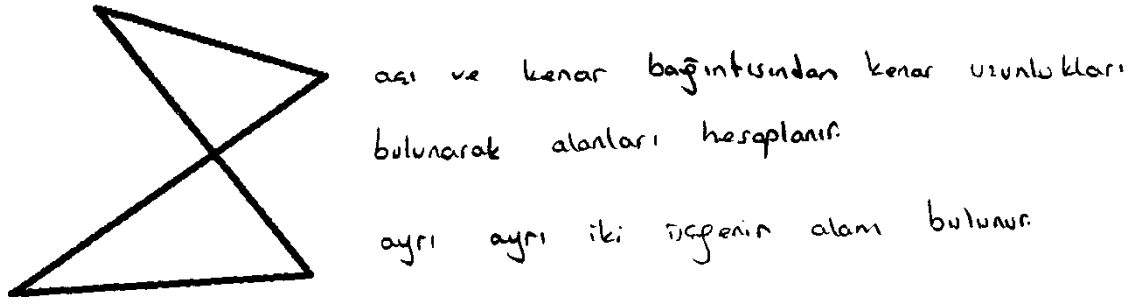 açı ve kenar bağıntısından kenar uzunlukları
bulunarak alanları hesaplanır.
ayrı ayrı iki üçgenin alanı bulunur.